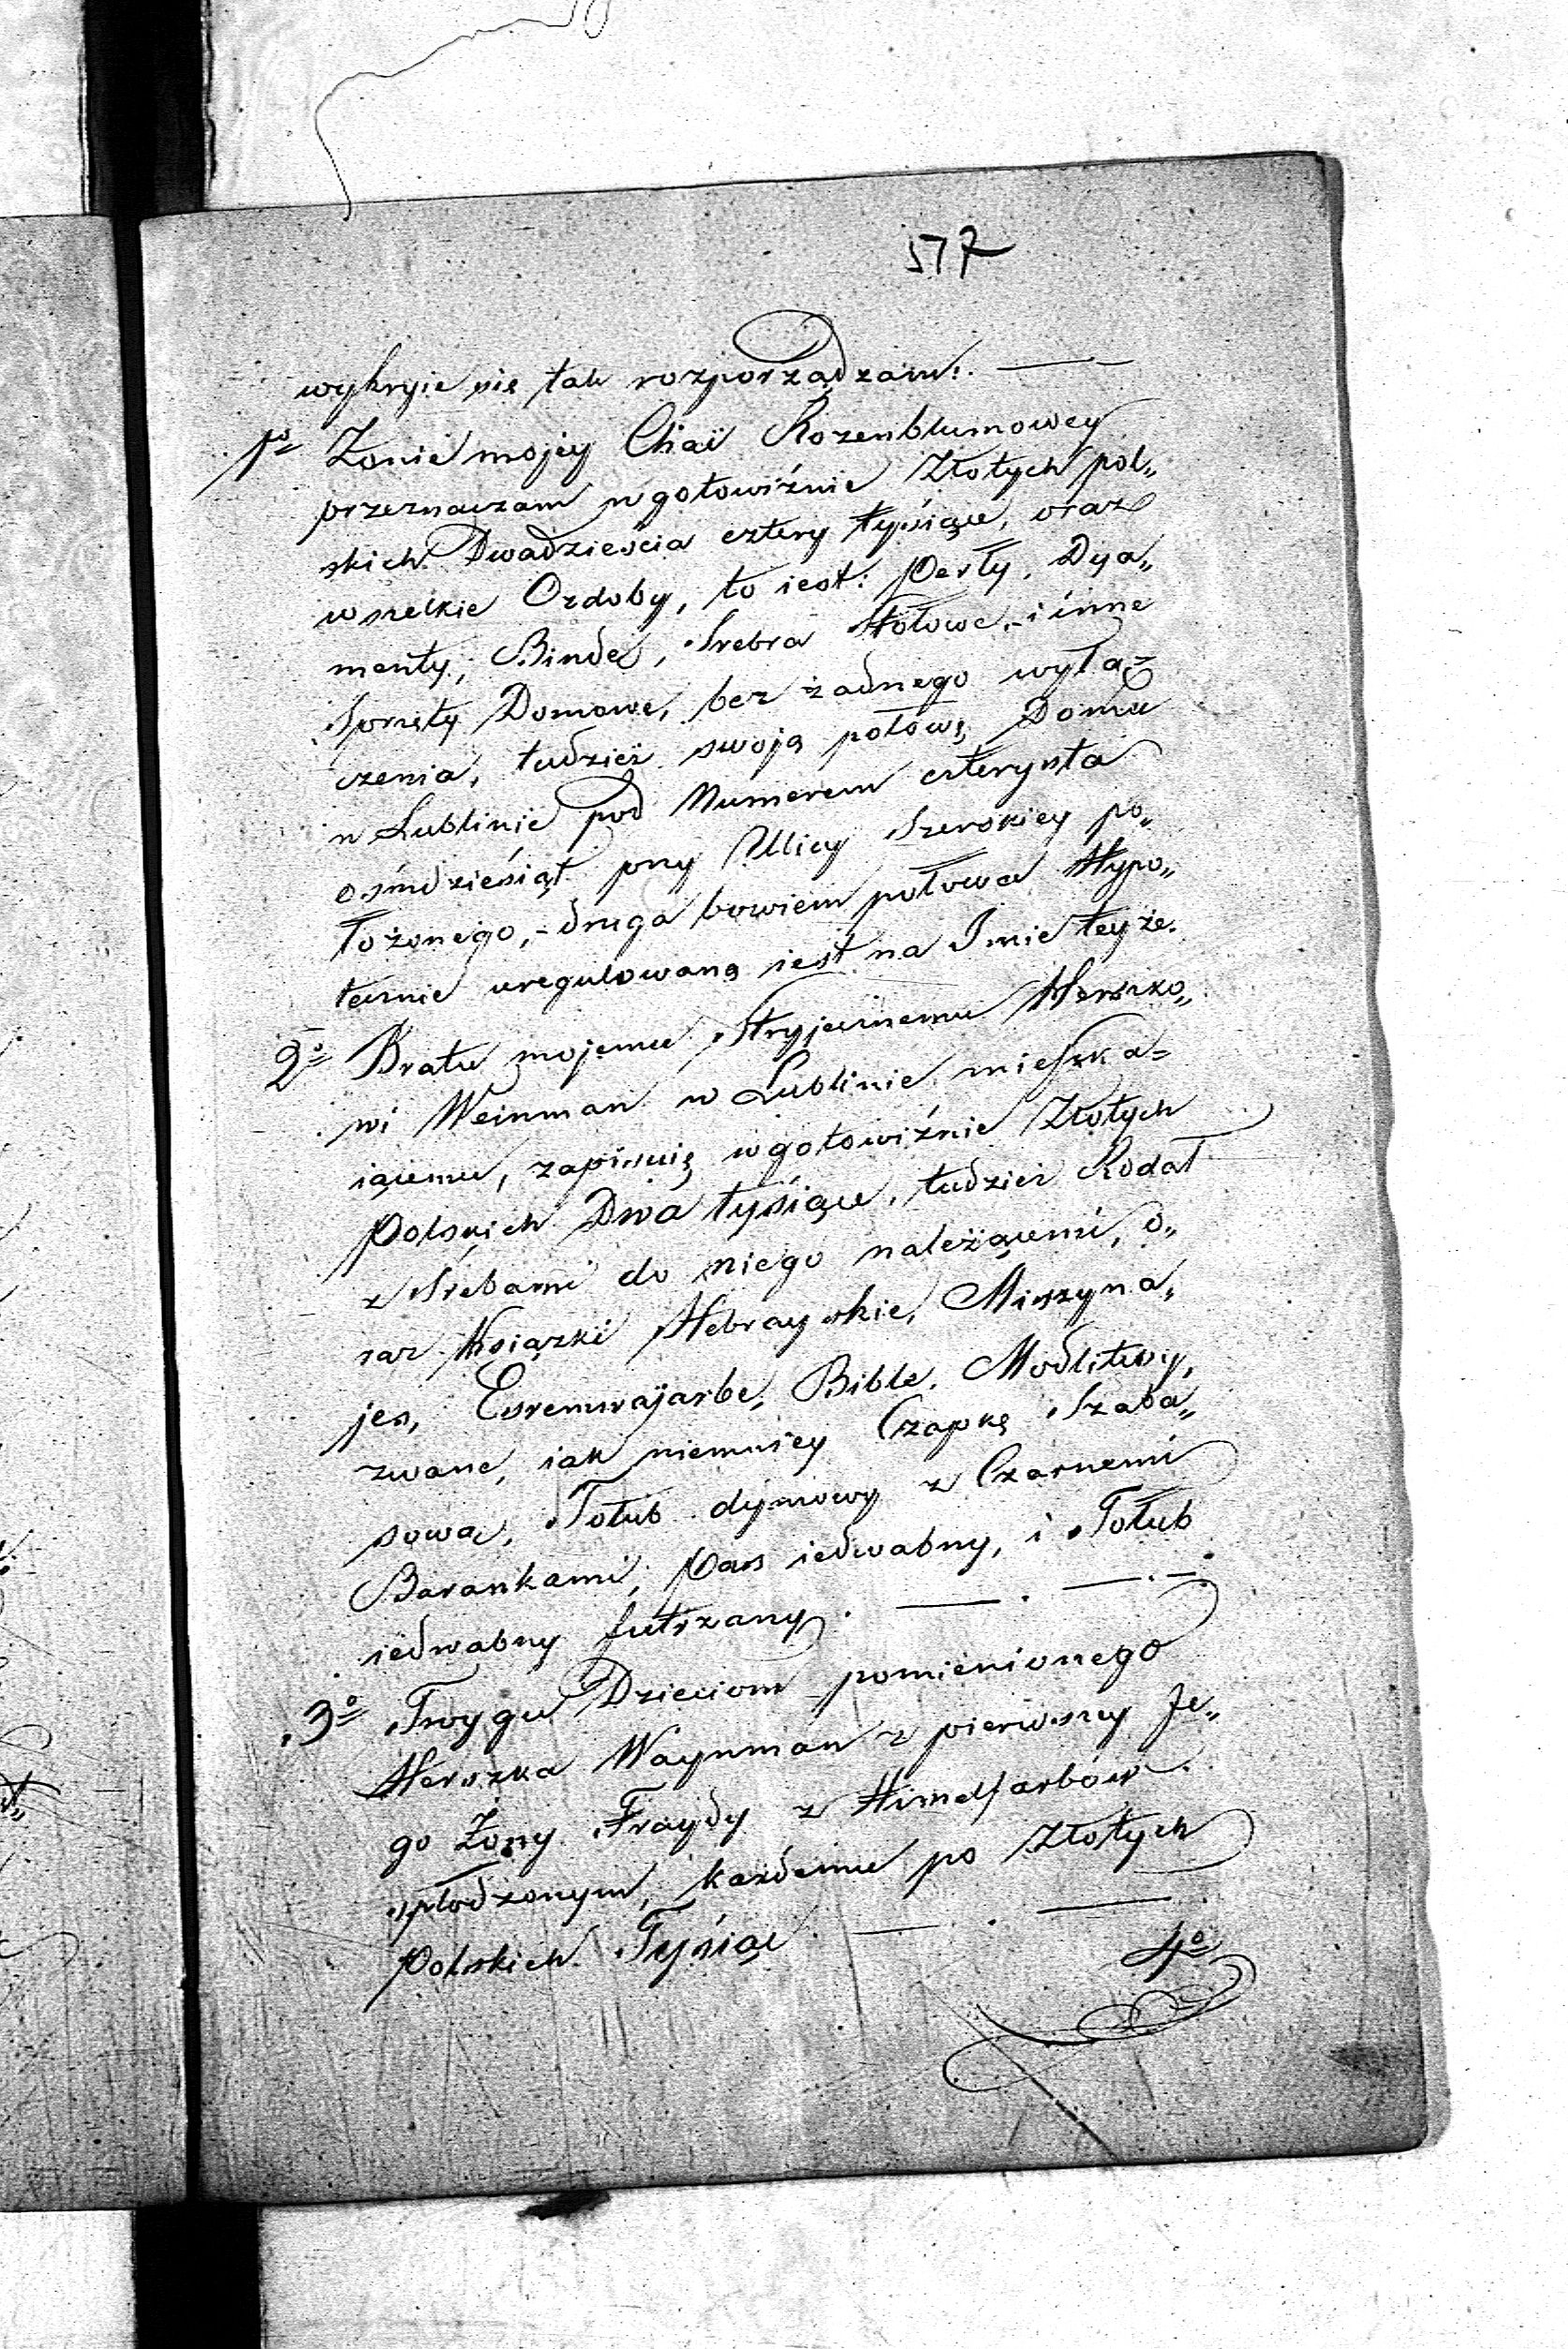 577
wykryie się tak rozporządzam: —
1º Żonie mojey Chai Rozenblumowey
przeznaczam w gotowiźnie Złotych pol„
skich Dwadzieścia cztery tysiące, oraz
wszelkie Ozdoby, to iest: Perły, Dya„
menty, Binde, Srebra Stołowe, i inne
Sprzęty Domowe, bez żadnego wyłą=
czenia, tudzież swoją połowę Domu
w Lublinie pod Numerem czterysta
ośmdziesiąt przy Ulicy Szerokiey po„
łożonego, - druga bowiem połowa Hypo„
tecznie uregulowaną iest na Imie teyże.
2º Bratu mojemu Stryjecznemu Herszko„
wi Weinman w Lublinie mieszka=
iącemu, zapisuię w gotowiźnie Złotych
Polskich Dwa tysiące, tudzież Rodał
z Srebami do niego należącemi, o„
raz Książki Hebrayskie, Miszyna„
jes, Esremwajarbe, Bible, Modlitwy,
zwane, iak niemniey Czapkę Szaba„
sową, Tołub dymowy z Czarnemi
Barankami, Pas iedwabny, i Tołub
iedwabny futrzany. — . — . — .
3º Troygu Dzieciom pomienionego
Herszka Waynman z pierwszey Je„
go Żony Fraydy z Himelfarbów
spłodzonym, każdemu po Złotych
Polskich Tysiąc. — . —
4º